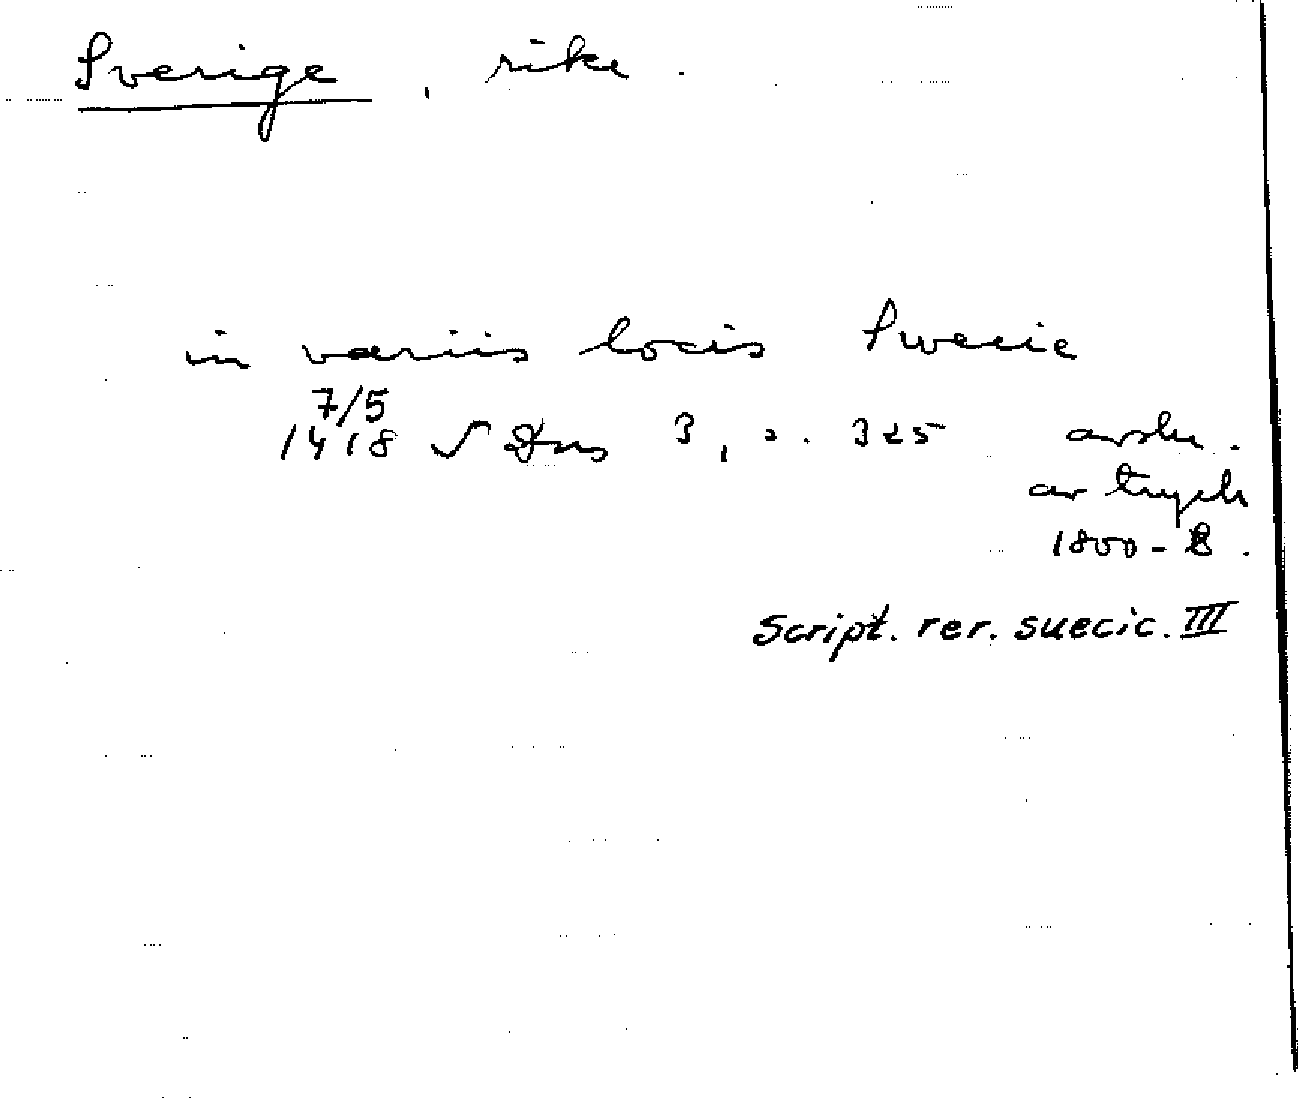 Sverige, rike.
in variis locis Swecie
7/5
1418 SDns 3, s. 325 avskr.
av tryck
1800-t.
Script. rer. suecic. III